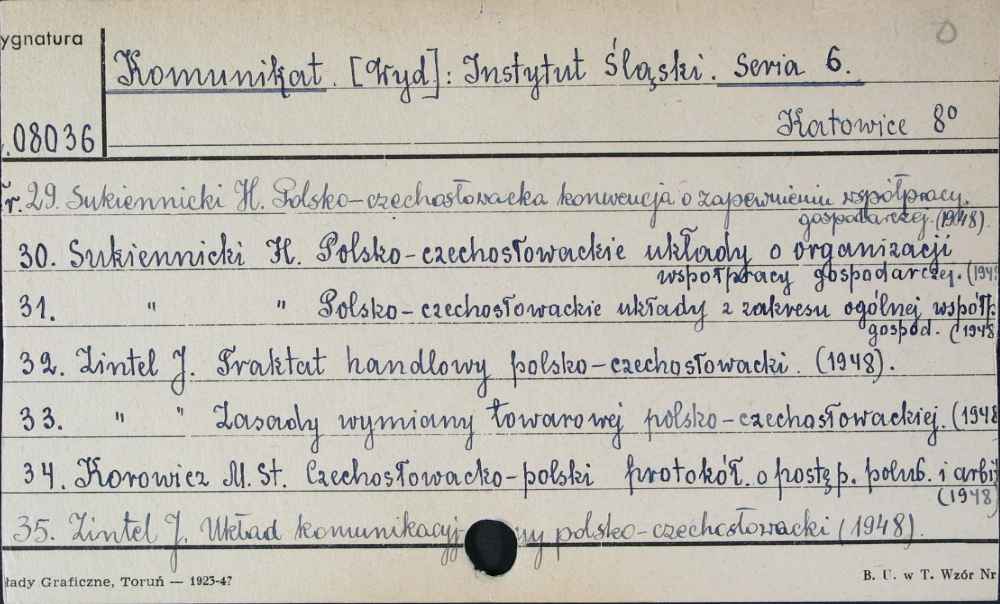 ygnatura
Komunikat. [Wyd]: Instytut Śląski. Seria 6.
.08036
Katowice 8º
r. 29. Sukiennicki H. Polsko-czechosłowacka konwencja o zapewnieniu współpracy.
gospodarczej. (1948).
30. Sukiennicki H. Polsko-czechosłowackie układy o organizacji
współpracy gospodarczej. (194
31. " " Polsko-czechosłowackie układy z zakresu ogólnej współp.
gospod. (1948
32. Zintel J. Traktat handlowy polsko-czechosłowacki. (1948).
33. " " Zasady wymiany towarowej polsko-czechosłowackiej. (1948
34. Korowicz M. St. Czechosłowacko-polski protokół. o postęp. polub. i arbi
(1948)
35. Zintel J. Układ komunikacyj ny polsko-czechosłowacki (1948).
łady Graficzne, Toruń — 1923-47
B. U. w T. Wzór Nr